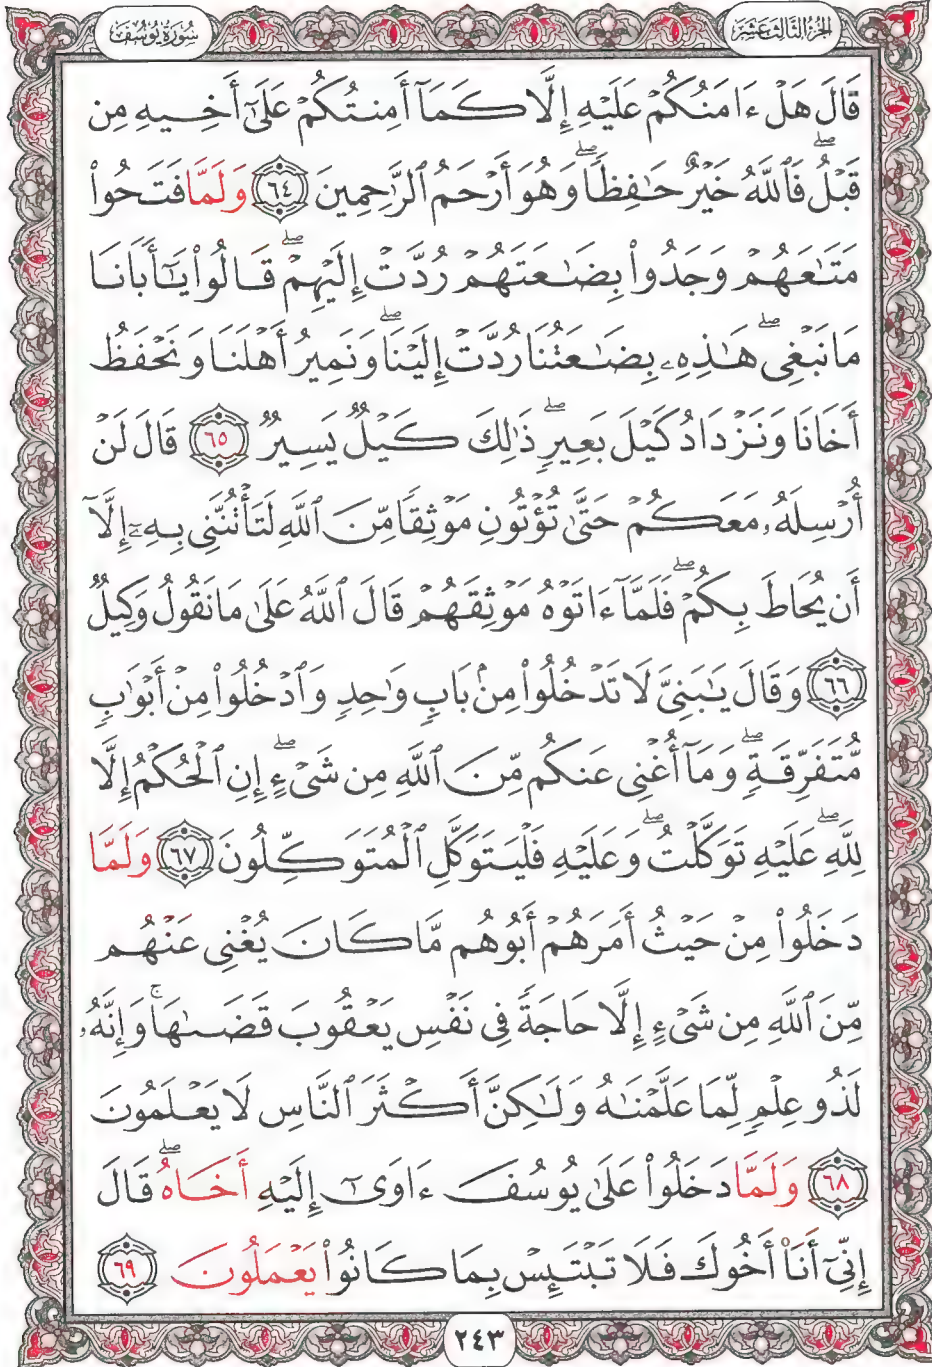 الجزء الثالث عشر
سورة يوسف
قَالَ هَلْ ءَامَنُكُمْ عَلَيْهِ إِلَّا كَمَآ أَمِنتُكُمْ عَلَىٰٓ أَخِيهِ مِن
قَبْلُۖ فَٱللَّهُ خَيْرٌ حَٰفِظًاۖ وَهُوَ أَرْحَمُ ٱلرَّٰحِمِينَ ٦٤ وَلَمَّا فَتَحُوا۟
مَتَٰعَهُمْ وَجَدُوا۟ بِضَٰعَتَهُمْ رُدَّتْ إِلَيْهِمْۖ قَالُوا۟ يَٰٓأَبَانَا
مَا نَبْغِىۖ هَٰذِهِۦ بِضَٰعَتُنَا رُدَّتْ إِلَيْنَاۖ وَنَمِيرُ أَهْلَنَا وَنَحْفَظُ
أَخَانَا وَنَزْدَادُ كَيْلَ بَعِيرٍۖ ذَٰلِكَ كَيْلٌ يَسِيرٌ ٦٥ قَالَ لَنْ
أُرْسِلَهُۥ مَعَكُمْ حَتَّىٰ تُؤْتُونِ مَوْثِقًا مِّنَ ٱللَّهِ لَتَأْتُنَّنِى بِهِۦٓ إِلَّآ
أَن يُحَاطَ بِكُمْۖ فَلَمَّآ ءَاتَوْهُ مَوْثِقَهُمْ قَالَ ٱللَّهُ عَلَىٰ مَا نَقُولُ وَكِيلٌ
٦٦ وَقَالَ يَٰبَنِىَّ لَا تَدْخُلُوا۟ مِنۢ بَابٍ وَٰحِدٍ وَٱدْخُلُوا۟ مِنْ أَبْوَٰبٍ
مُّتَفَرِّقَةٍۖ وَمَآ أُغْنِى عَنكُم مِّنَ ٱللَّهِ مِن شَىْءٍۖ إِنِ ٱلْحُكْمُ إِلَّا
لِلَّهِۖ عَلَيْهِ تَوَكَّلْتُۖ وَعَلَيْهِ فَلْيَتَوَكَّلِ ٱلْمُتَوَكِّلُونَ ٦٧ وَلَمَّا
دَخَلُوا۟ مِنْ حَيْثُ أَمَرَهُمْ أَبُوهُم مَّا كَانَ يُغْنِى عَنْهُم
مِّنَ ٱللَّهِ مِن شَىْءٍ إِلَّا حَاجَةً فِى نَفْسِ يَعْقُوبَ قَضَىٰهَاۚ وَإِنَّهُۥ
لَذُو عِلْمٍ لِّمَا عَلَّمْنَٰهُ وَلَٰكِنَّ أَكْثَرَ ٱلنَّاسِ لَا يَعْلَمُونَ
٦٨ وَلَمَّا دَخَلُوا۟ عَلَىٰ يُوسُفَ ءَاوَىٰٓ إِلَيْهِ أَخَاهُۖ قَالَ
إِنِّىٓ أَنَا۠ أَخُوكَ فَلَا تَبْتَئِسْ بِمَا كَانُوا۟ يَعْمَلُونَ ٦٩
٢٤٣